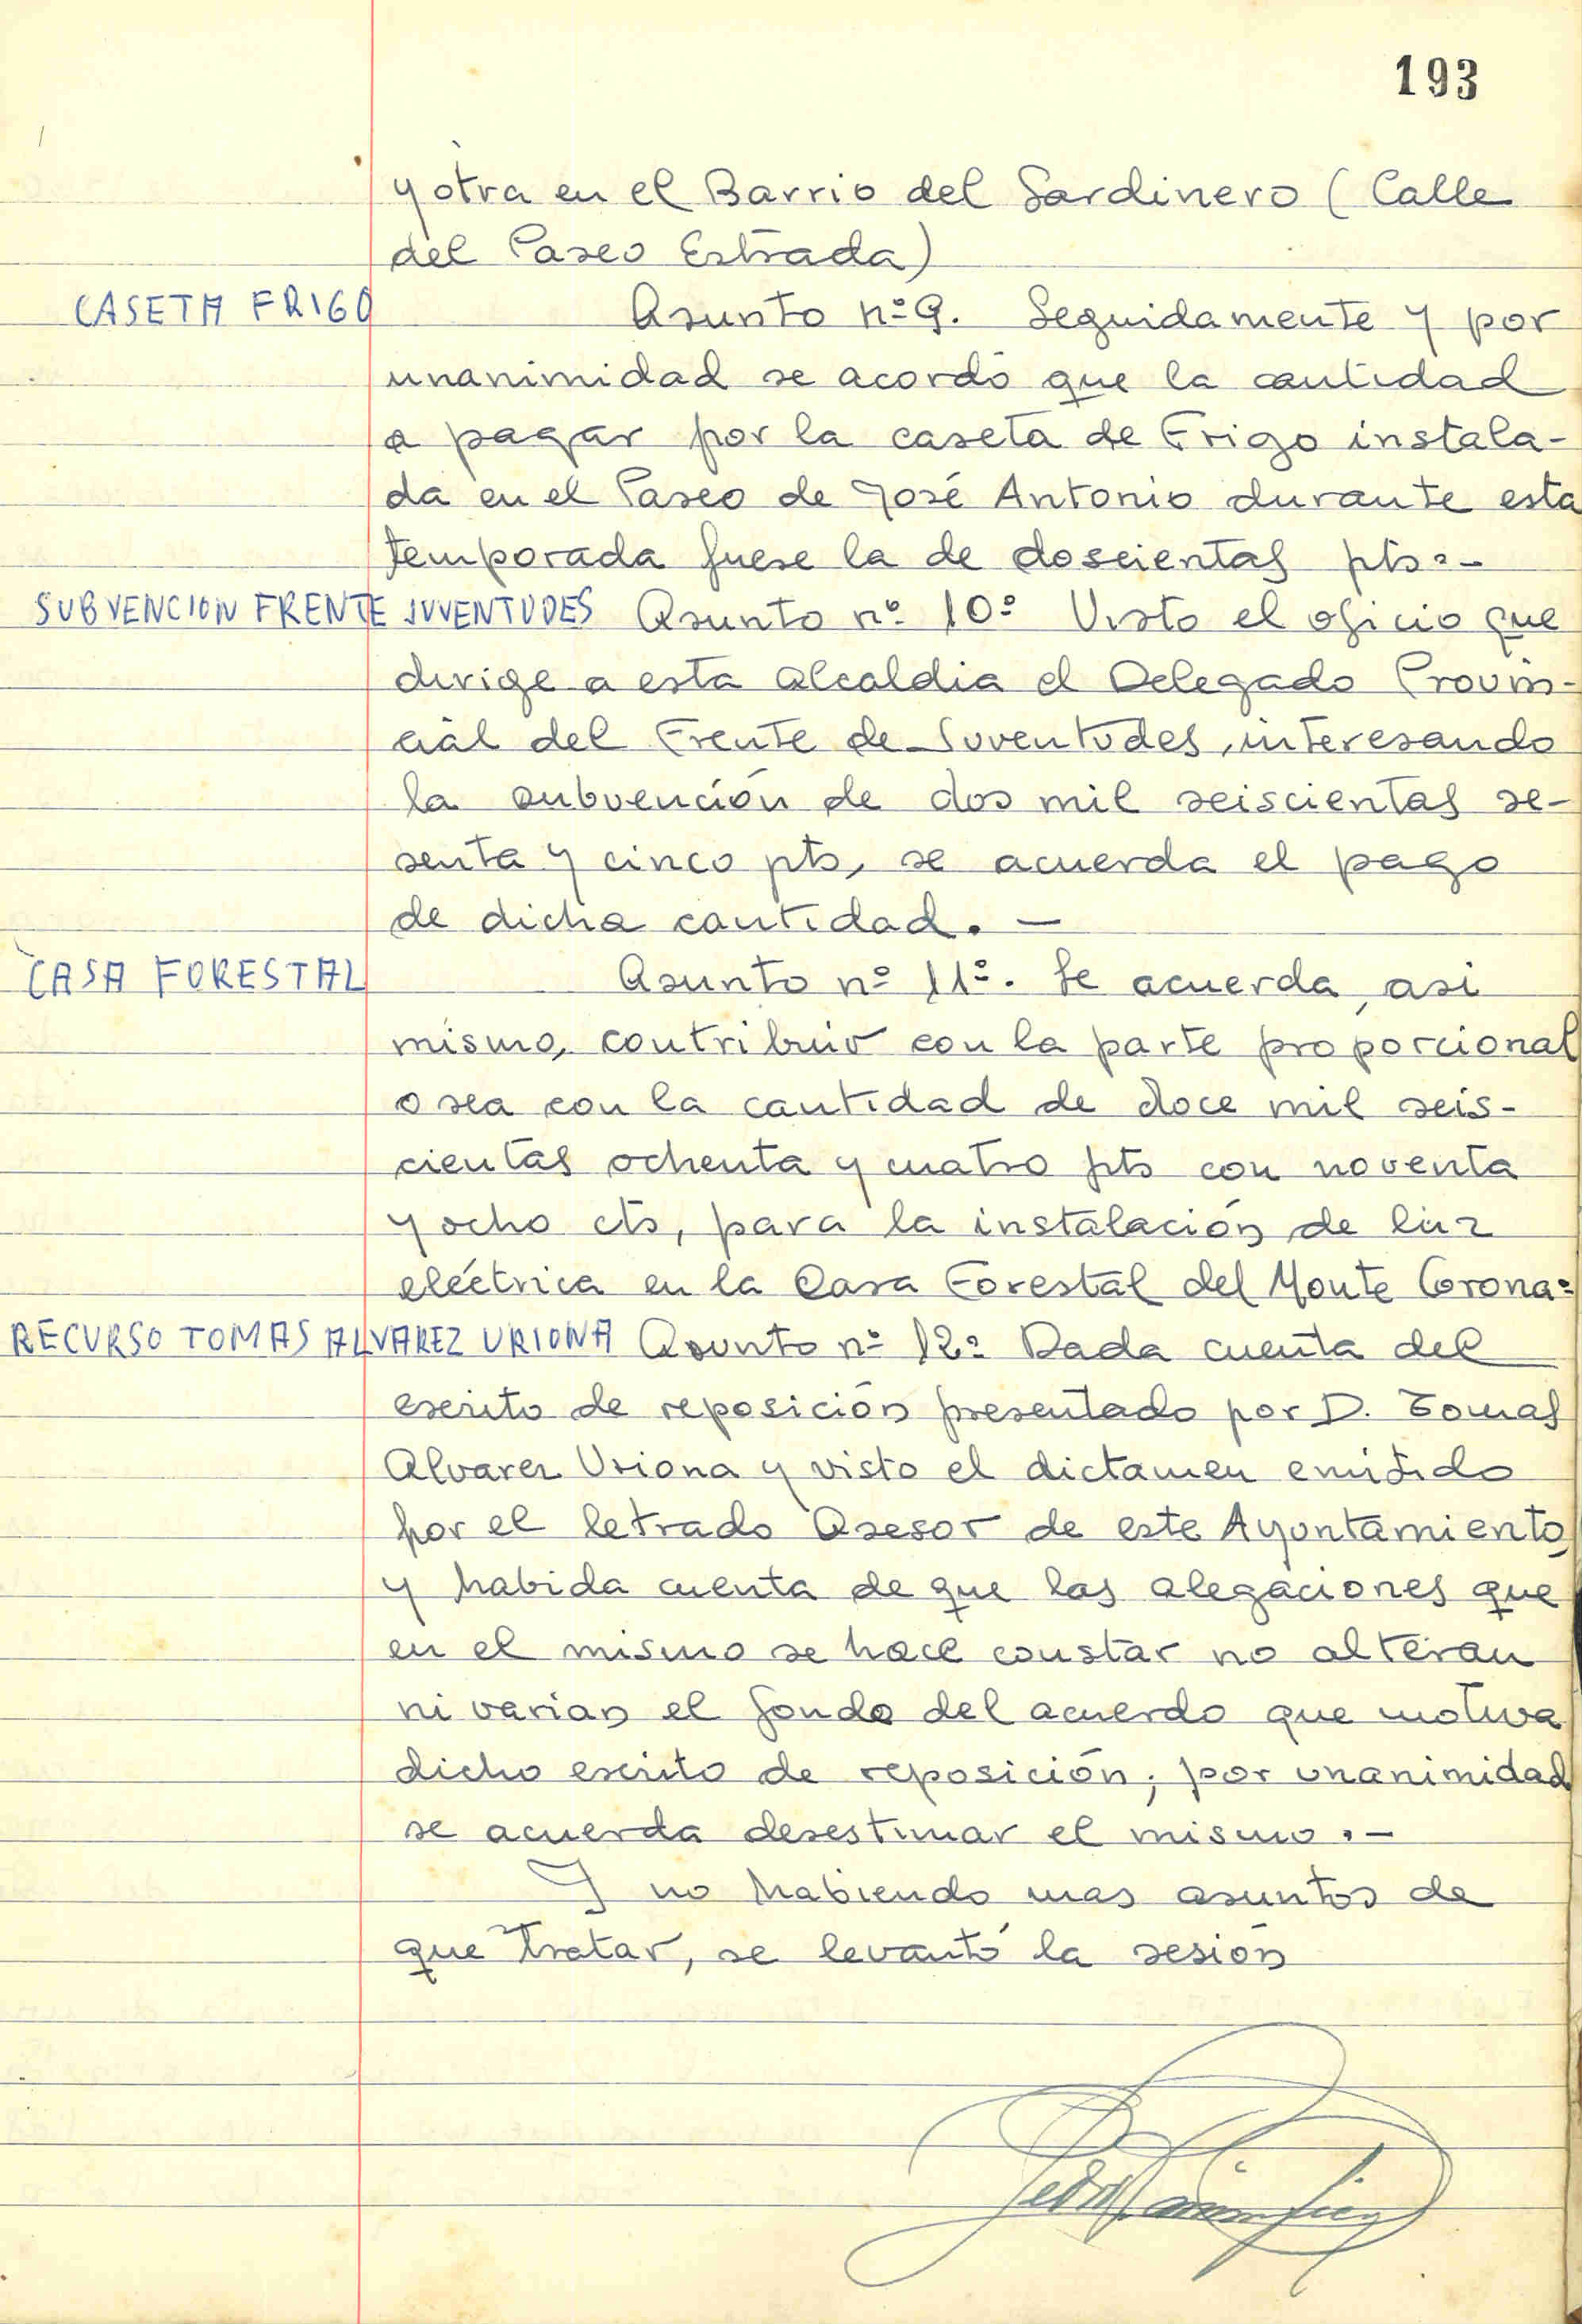 193
y otra en el Barrio del Sardinero (Calle
del Paseo Estrada)
CASETA FRIGO
Asunto nº 9. Seguidamente y por
unanimidad se acordó que la cantidad
a pagar por la caseta de Frigo instala-
da en el Paseo de José Antonio durante esta
temporada fuese la de doscientas pts.-
SUBVENCION FRENTE JUVENTUDES Asunto nº 10º Visto el oficio que
dirige a esta Alcaldia el Delegado Provin-
cial del Frente de Juventudes, interesando
la subvención de dos mil seiscientas se-
senta y cinco pts, se acuerda el pago
de dicha cantidad. -
CASA FORESTAL
Asunto nº 11º. Se acuerda, asi
mismo, contribuir con la parte proporcional
o sea con la cantidad de doce mil seis-
cientas ochenta y cuatro pts con noventa
y ocho cts, para la instalación de luz
eléctrica en la Casa Forestal del Monte Corona-
RECURSO TOMAS ALVAREZ URIONA Asunto nº 12º Dada cuenta del
escrito de reposición presentado por D. Tomas
Alvarez Uriona y visto el dictamen emitido
por el letrado Asesor de este Ayuntamiento
y habida cuenta de que las alegaciones que
en el mismo se hace constar no alteran
ni varian el fondo del acuerdo que motiva
dicho escrito de reposición; por unanimidad
se acuerda desestimar el mismo.-
Y no habiendo mas asuntos de
que tratar, se levantó la sesión